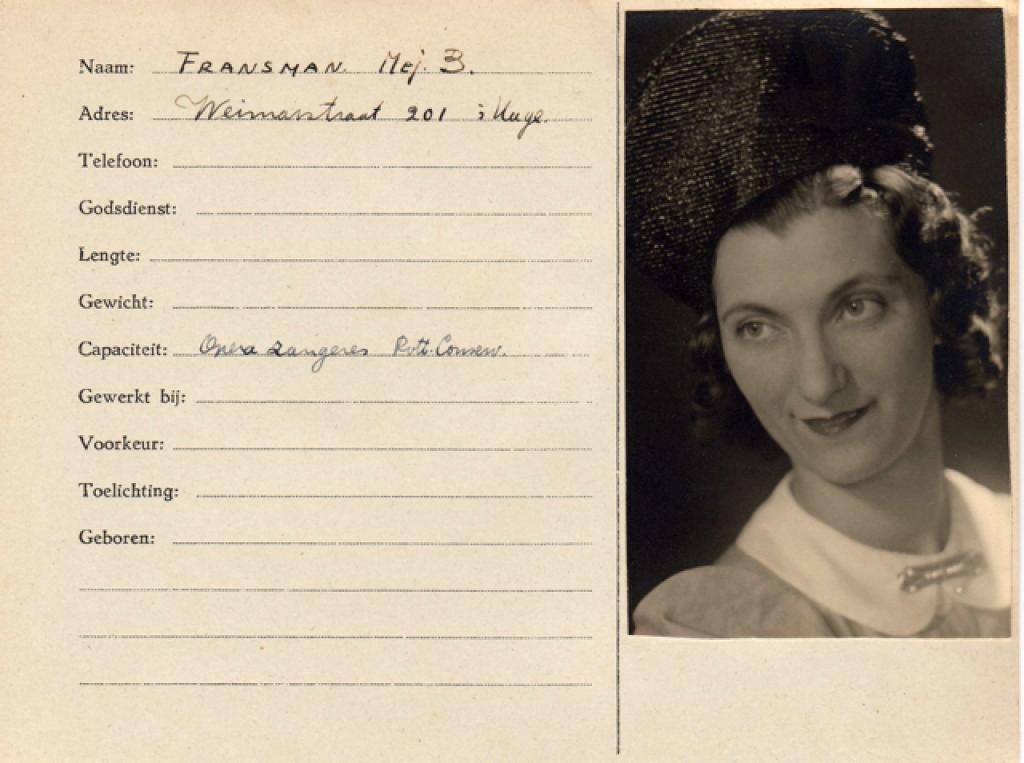 Naam: FRANSMAN. Mej. B.
Adres: Weimarstraat 201 's Hage.
Telefoon:
Godsdienst:
Lengte:
Gewicht:
Capaciteit: Opera zangeres Rott. Conserv.
Gewerkt bij:
Voorkeur:
Toelichting:
Geboren: